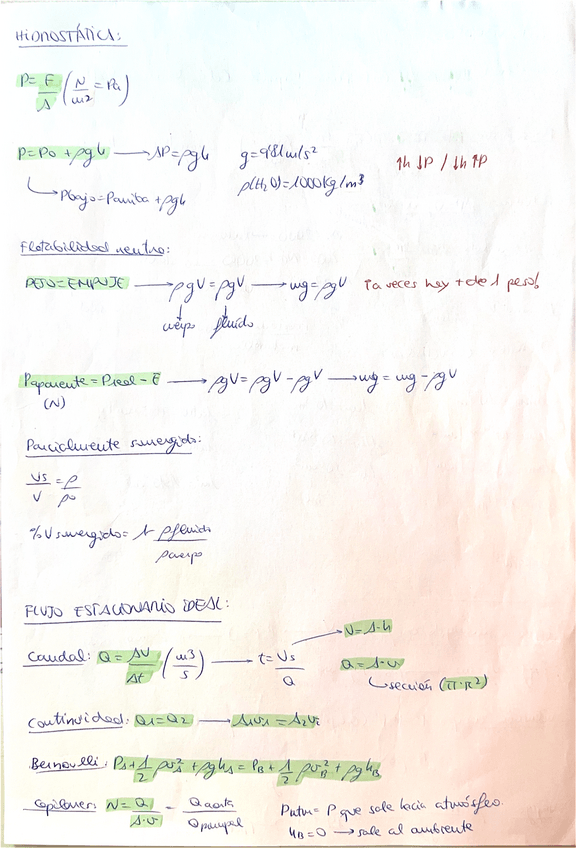 HIDROSTÁTICA:
P = F/A (N/m2 = Pa)
P = Po + ρgh → ΔP = ρgh g = 9'81 m/s² ↑h ↓P / ↓h ↑P
↳ Pbajo = Parriba + ρgh ρ(H₂O) = 1000 kg/m³
Flotabilidad neutra:
PESO = EMPUJE → ρgV = ρgV → mg = ρgV ¡a veces hay + de 1 peso!
cuerpo fluido
Paparente = Preal - E → ρgV = ρgV - ρgV → mg = mg - ρgV
(N)
Parcialmente sumergido:
Vs/V = ρ/ρo
%V sumergido = 1 - ρfluido/ρcuerpo
FLUJO ESTACIONARIO IDEAL:
V = A·h
Caudal: Q = ΔV/Δt (m3/s) → t = Vs/Q Q = A·v
↳ sección (π·r²)
Continuidad: Q1 = Q2 → A1v1 = A2v2
Bernoulli: PA + 1/2 ρvA² + ρghA = PB + 1/2 ρvB² + ρghB
Capilares: N = Q/A·v = Qaorta/Qprincipal Patm = P que sale hacia atmósfera.
hB = 0 → sale al ambiente